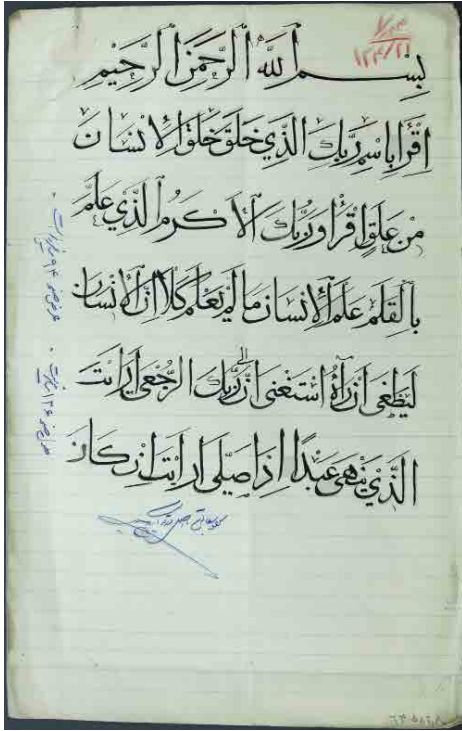 بِسْمِ اللّٰهِ الرَّحْمٰنِ الرَّحِيْمِ
اِقْرَأْ بِاسْمِ رَبِّكَ الَّذِي خَلَقَ خَلَقَ الْاِنْسَانَ
مِنْ عَلَقٍ اِقْرَأْ وَرَبُّكَ الْاَكْرَمُ الَّذِي عَلَّمَ
بِالْقَلَمِ عَلَّمَ الْاِنْسَانَ مَالَمْ يَعْلَمْ كَلَّا اِنَّ الْاِنْسَانَ
لَيَطْغٰى اَنْ رَاٰهُ اسْتَغْنٰى اِنَّ اِلٰى رَبِّكَ الرُّجْعٰى اَرَاَيْتَ
الَّذِي يَنْهٰى عَبْدًا اِذَا صَلّٰى اَرَاَيْتَ اِنْ كَانَ